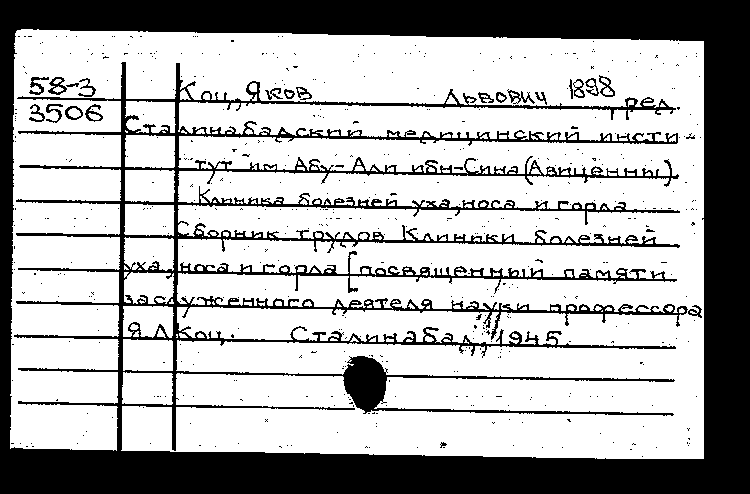 58-3
3506
Коц, Яков Львович 1898, ред.
Сталинабадский медицинский инсти-
тут им. Абу-Али ибн-Сина (Авиценны).
Клиника болезней уха, носа и горла
Сборник трудов Клиники болезней
уха, носа и горла [посвященный памяти
заслуженного деятеля науки профессора
Я.Л. Коц. Сталинабад, 1945.